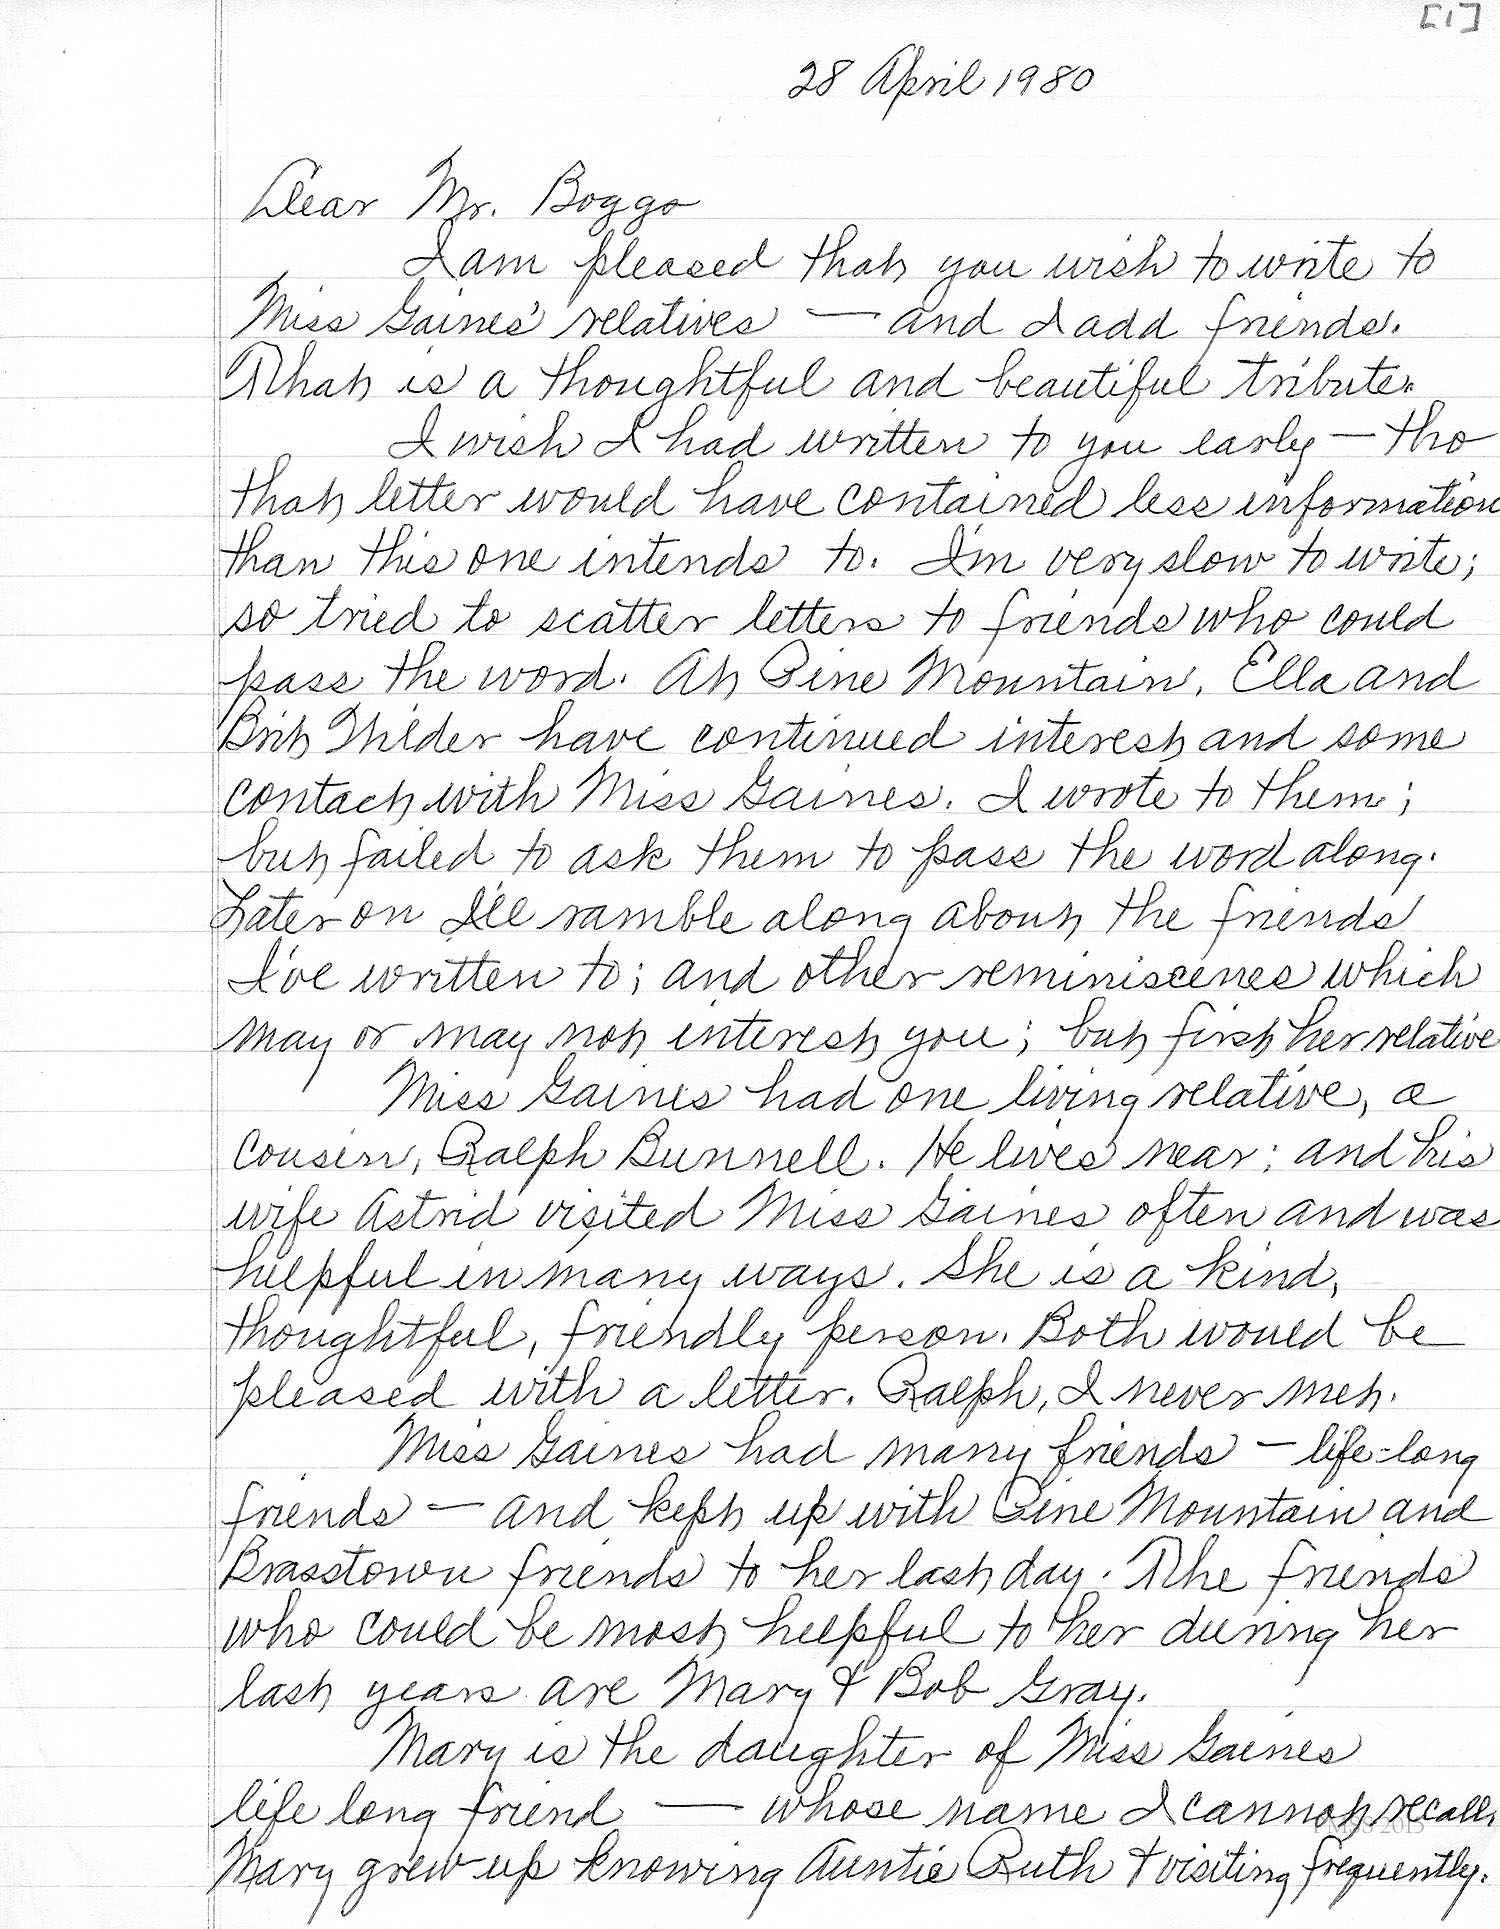 [1]
28 April 1980
Dear Mr. Boggs
I am pleased that you wish to write to
Miss Gaines' relatives — and I add friends.
That is a thoughtful and beautiful tribute.
I wish I had written to you early — tho
that letter would have contained less information
than this one intends to. I'm very slow to write;
so tried to scatter letters to friends who could
pass the word. At Pine Mountain, Ella and
Brit Wilder have continued interest and some
contact with Miss Gaines. I wrote to them;
but failed to ask them to pass the word along.
Later on I'll ramble along about the friends
I've written to; and other reminiscenes which
may or may not interest you; but first her relative
Miss Gaines had one living relative, a
cousin, Ralph Bunnell. He lives near; and his
wife Astrid visited Miss Gaines often and was
helpful in many ways. She is a kind,
thoughtful, friendly person. Both would be
pleased with a letter. Ralph, I never met.
Miss Gaines had many friends — life-long
friends — and kept up with Pine Mountain and
Brasstown friends to her last day. The friends
who could be most helpful to her during her
last years are Mary & Bob Gray.
Mary is the daughter of Miss Gaines
life long friend — whose name I cannot recall.
PMSS 2015
Mary grew up knowing Auntie Ruth & visiting frequently.